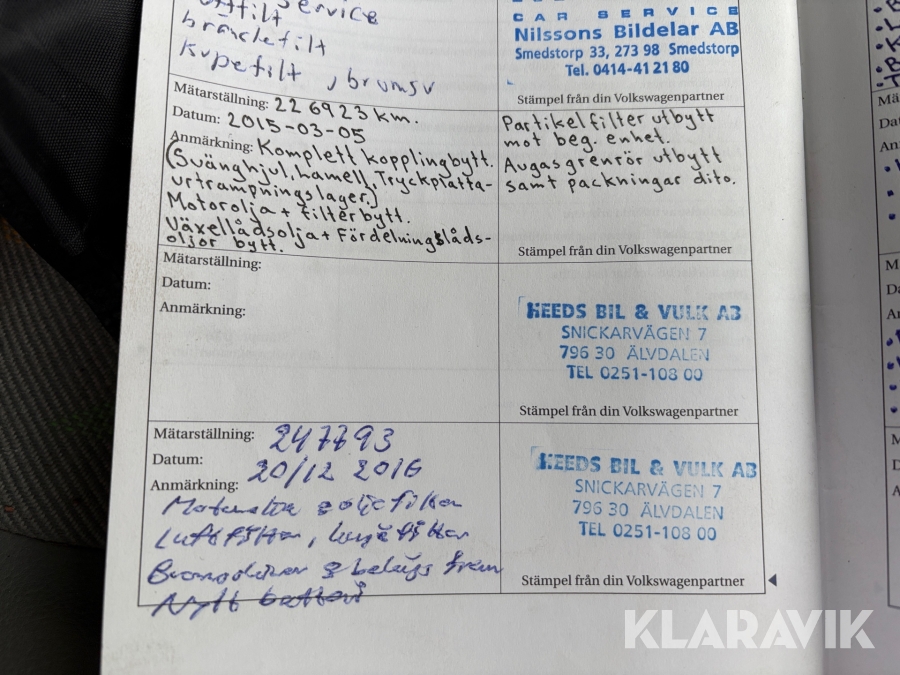 service
bränslefilt
Kupefilt , bromsv
CAR SERVICE
Nilssons Bildelar AB
Smedstorp 33, 273 98 Smedstorp
Tel. 0414-41 21 80
Stämpel från din Volkswagenpartner
Mätarställning: 226923 km.
Datum: 2015-03-05
Anmärkning: Komplett kopplingbytt.
(Svänghjul, Lamell, Tryckplatta-
urtrampningslager.)
Motorolja + filter bytt.
Växellådsolja + Fördelningslåds-
oljor bytt.
Partikelfilter utbytt
mot beg. enhet.
Avgasgrenrör utbytt
samt packningar dito.
Stämpel från din Volkswagenpartner
Mätarställning:
Datum:
Anmärkning:
HEEDS BIL & VULK AB
SNICKARVÄGEN 7
796 30 ÄLVDALEN
TEL 0251-108 00
Stämpel från din Volkswagenpartner
Mätarställning: 247793
Datum: 20/12 2016
Anmärkning:
Luftfilter,
fram
Nytt batteri
HEEDS BIL & VULK AB
SNICKARVÄGEN 7
796 30 ÄLVDALEN
TEL 0251-108 00
Stämpel från din Volkswagenpartner
KLARAVIK